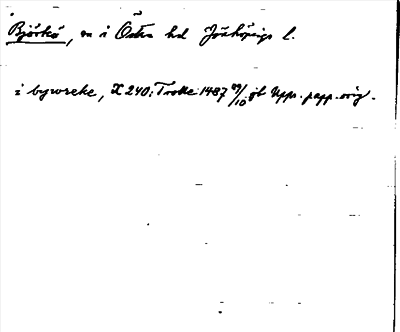 Björkö, sn i Östra hd Jönköpings l.
i byrreke, X 240: Trolle 1487 29/10 jb Upps. papp. orig.